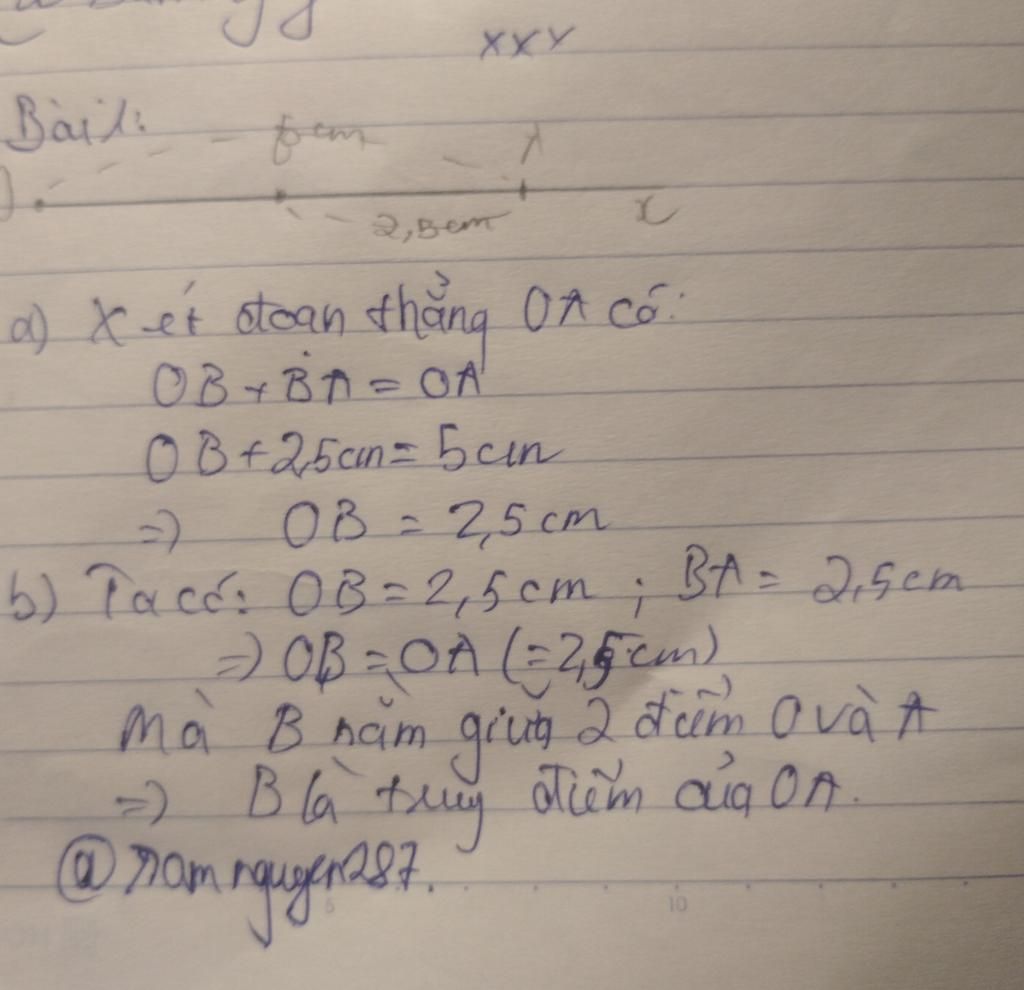 xxx
Bài 1:
5cm
A
2,5cm
x
a) Xét đoạn thẳng OA có:
OB + BA = OA
OB + 2,5cm = 5cm
=> OB = 2,5cm
b) Ta có: OB = 2,5cm ; BA = 2,5cm
=> OB = OA (= 2,5cm)
Mà B nằm giữa 2 điểm O và A
=> B là trung điểm của OA.
@namnguyen287.
5 10